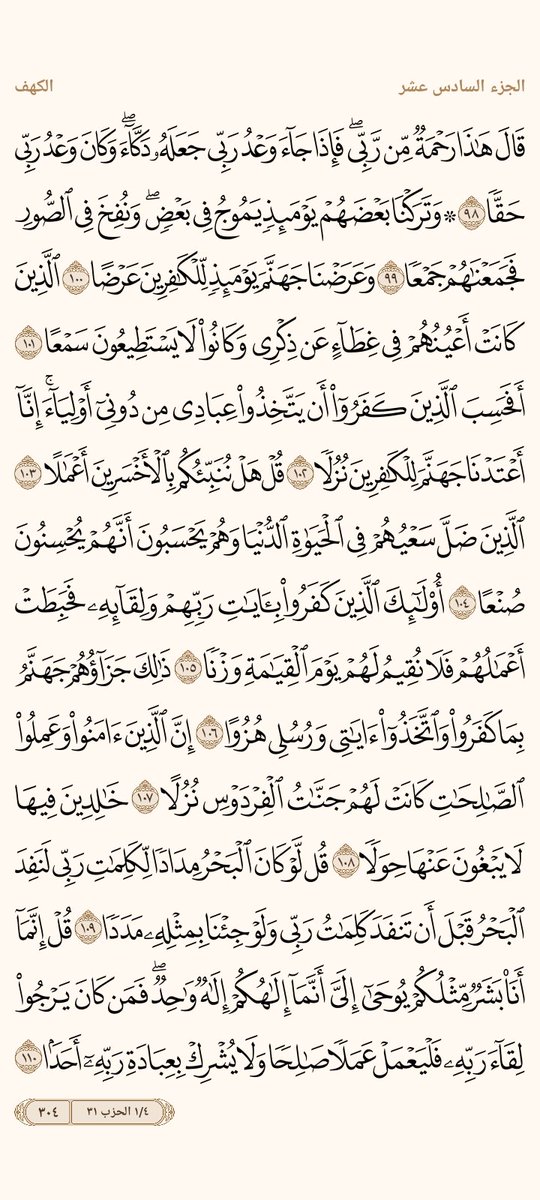 الجزء السادس عشر
الكهف
قَالَ هَٰذَا رَحْمَةٌ مِّن رَّبِّي ۖ فَإِذَا جَآءَ وَعْدُ رَبِّي جَعَلَهُۥ دَكَّآءَ ۖ وَكَانَ وَعْدُ رَبِّي
حَقًّا ٩٨ ۞ وَتَرَكْنَا بَعْضَهُمْ يَوْمَئِذٍ يَمُوجُ فِي بَعْضٍ ۖ وَنُفِخَ فِي ٱلصُّورِ
فَجَمَعْنَٰهُمْ جَمْعًا ٩٩ وَعَرَضْنَا جَهَنَّمَ يَوْمَئِذٍ لِّلْكَٰفِرِينَ عَرْضًا ١٠٠ ٱلَّذِينَ
كَانَتْ أَعْيُنُهُمْ فِي غِطَآءٍ عَن ذِكْرِي وَكَانُوا۟ لَا يَسْتَطِيعُونَ سَمْعًا ١٠١
أَفَحَسِبَ ٱلَّذِينَ كَفَرُوٓا۟ أَن يَتَّخِذُوا۟ عِبَادِي مِن دُونِيٓ أَوْلِيَآءَ ۚ إِنَّآ
أَعْتَدْنَا جَهَنَّمَ لِلْكَٰفِرِينَ نُزُلًا ١٠٢ قُلْ هَلْ نُنَبِّئُكُم بِٱلْأَخْسَرِينَ أَعْمَٰلًا ١٠٣
ٱلَّذِينَ ضَلَّ سَعْيُهُمْ فِي ٱلْحَيَوٰةِ ٱلدُّنْيَا وَهُمْ يَحْسَبُونَ أَنَّهُمْ يُحْسِنُونَ
صُنْعًا ١٠٤ أُو۟لَٰٓئِكَ ٱلَّذِينَ كَفَرُوا۟ بِـَٔايَٰتِ رَبِّهِمْ وَلِقَآئِهِۦ فَحَبِطَتْ
أَعْمَٰلُهُمْ فَلَا نُقِيمُ لَهُمْ يَوْمَ ٱلْقِيَٰمَةِ وَزْنًا ١٠٥ ذَٰلِكَ جَزَآؤُهُمْ جَهَنَّمُ
بِمَا كَفَرُوا۟ وَٱتَّخَذُوٓا۟ ءَايَٰتِي وَرُسُلِي هُزُوًا ١٠٦ إِنَّ ٱلَّذِينَ ءَامَنُوا۟ وَعَمِلُوا۟
ٱلصَّٰلِحَٰتِ كَانَتْ لَهُمْ جَنَّٰتُ ٱلْفِرْدَوْسِ نُزُلًا ١٠٧ خَٰلِدِينَ فِيهَا
لَا يَبْغُونَ عَنْهَا حِوَلًا ١٠٨ قُل لَّوْ كَانَ ٱلْبَحْرُ مِدَادًا لِّكَلِمَٰتِ رَبِّي لَنَفِدَ
ٱلْبَحْرُ قَبْلَ أَن تَنفَدَ كَلِمَٰتُ رَبِّي وَلَوْ جِئْنَا بِمِثْلِهِۦ مَدَدًا ١٠٩ قُلْ إِنَّمَآ
أَنَا۠ بَشَرٌ مِّثْلُكُمْ يُوحَىٰٓ إِلَيَّ أَنَّمَآ إِلَٰهُكُمْ إِلَٰهٌ وَٰحِدٌ ۖ فَمَن كَانَ يَرْجُوا۟
لِقَآءَ رَبِّهِۦ فَلْيَعْمَلْ عَمَلًا صَٰلِحًا وَلَا يُشْرِكْ بِعِبَادَةِ رَبِّهِۦٓ أَحَدًۢا ١١٠
١/٤ الحزب ٣١
٣٠٤